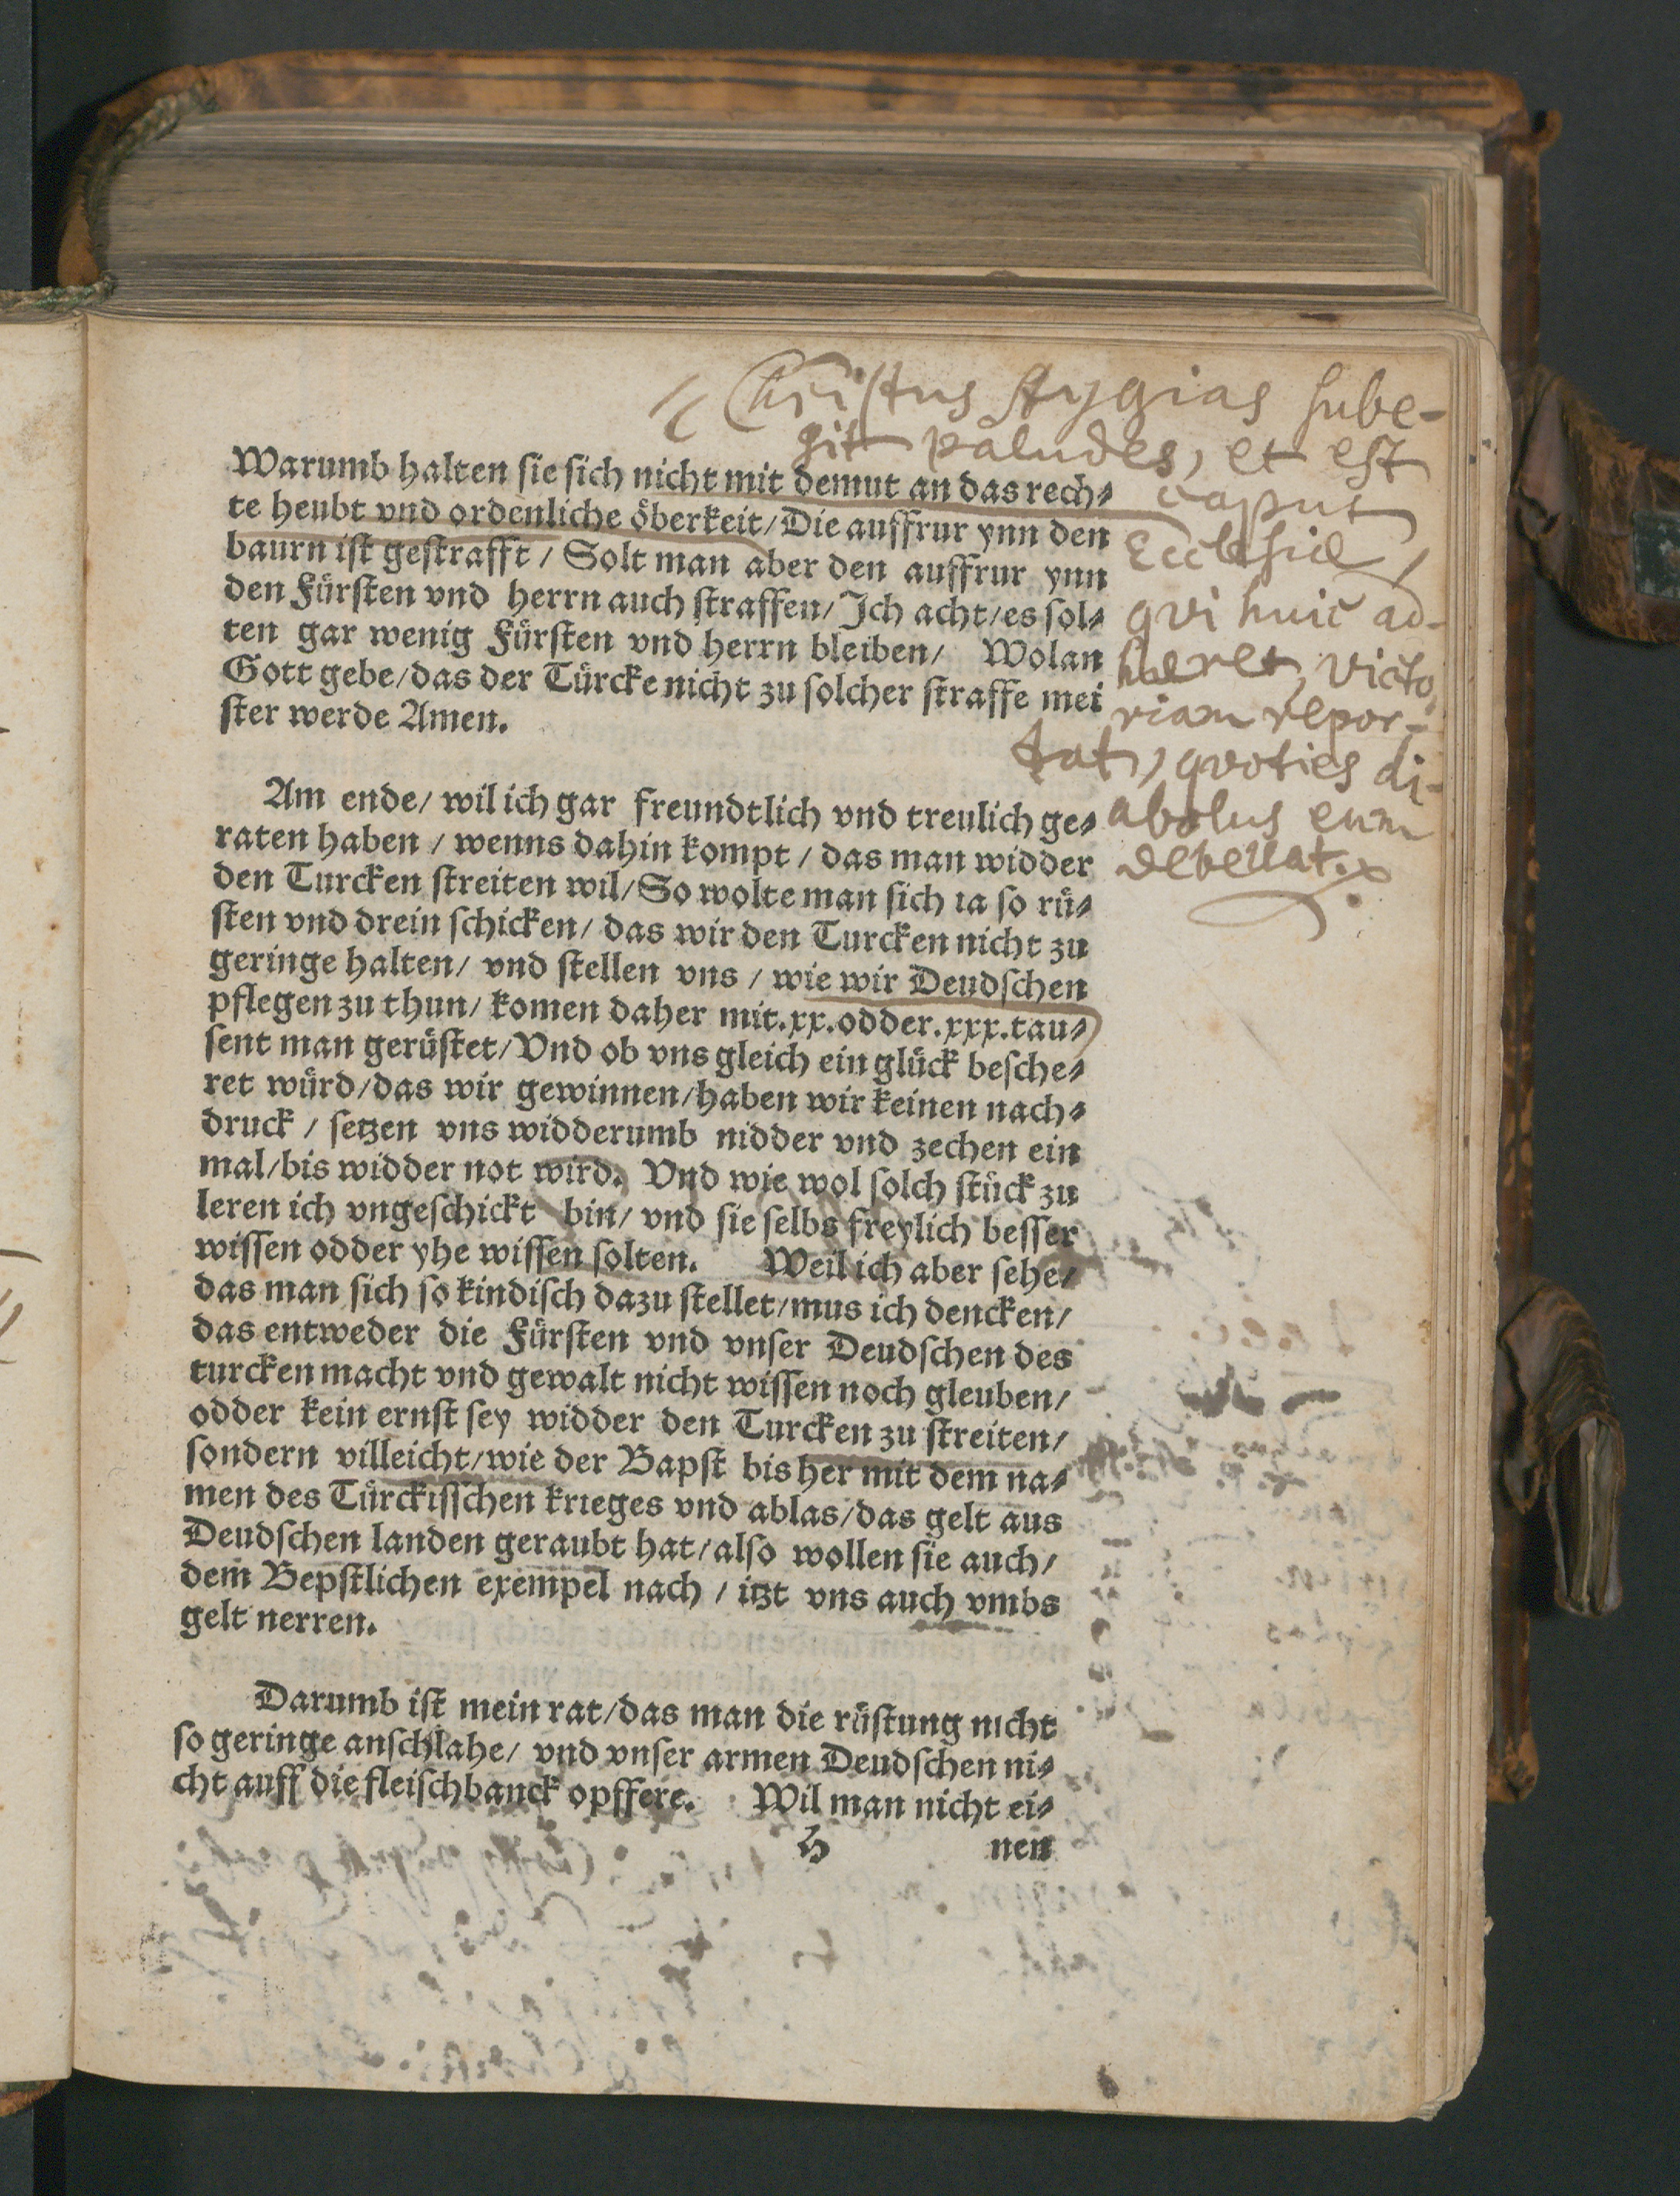 Christus stygias sube-
git paludes, et est
caput
Ecclesiae,
qvi huic ad-
haeret, victo
riam repor-
tat, qvoties di-
abolus eum
debellat.
Warumb halten sie sich nicht mit demut an das rech⸗
te heubt vnd ordenliche öberkeit/Die auffrur ynn den
baurn ist gestrafft / Solt man aber den auffrur ynn
den Fürsten vnd herrn auch straffen/Ich acht/es sol⸗
ten gar wenig Fürsten vnd herrn bleiben/ Wolan
Gott gebe/das der Türcke nicht zu solcher straffe mei
ster werde Amen.
Am ende/ wil ich gar freundtlich vnd treulich ge⸗
raten haben / wenns dahin kompt / das man widder
den Turcken streiten wil/So wolte man sich ia so rü⸗
sten vnd drein schicken/ das wir den Turcken nicht zu
geringe halten/ vnd stellen vns / wie wir Deudschen
pflegen zu thun/ komen daher mit.xx.odder.xxx.tau⸗
sent man gerüstet/Vnd ob vns gleich ein glück besche⸗
ret würd/das wir gewinnen/haben wir keinen nach⸗
druck / setzen vns widderumb nidder vnd zechen ein
mal/bis widder not wird. Vnd wie wol solch stück zu
leren ich vngeschickt bin/ vnd sie selbs freylich besser
wissen odder yhe wissen solten. Weil ich aber sehe/
das man sich so kindisch dazu stellet/mus ich dencken/
das entweder die Fürsten vnd vnser Deudschen des
turcken macht vnd gewalt nicht wissen noch gleuben/
odder kein ernst sey widder den Turcken zu streiten/
sondern villeicht/wie der Bapst bis her mit dem na⸗
men des Türckisschen krieges vnd ablas/das gelt aus
Deudschen landen geraubt hat/also wollen sie auch/
dem Bepstlichen exempel nach / itzt vns auch vmbs
gelt nerren.
Darumb ist mein rat/das man die rüstung nicht
so geringe anschlahe/ vnd vnser armen Deudschen ni⸗
cht auff die fleischbanck opffere. Wil man nicht ei⸗
H nen